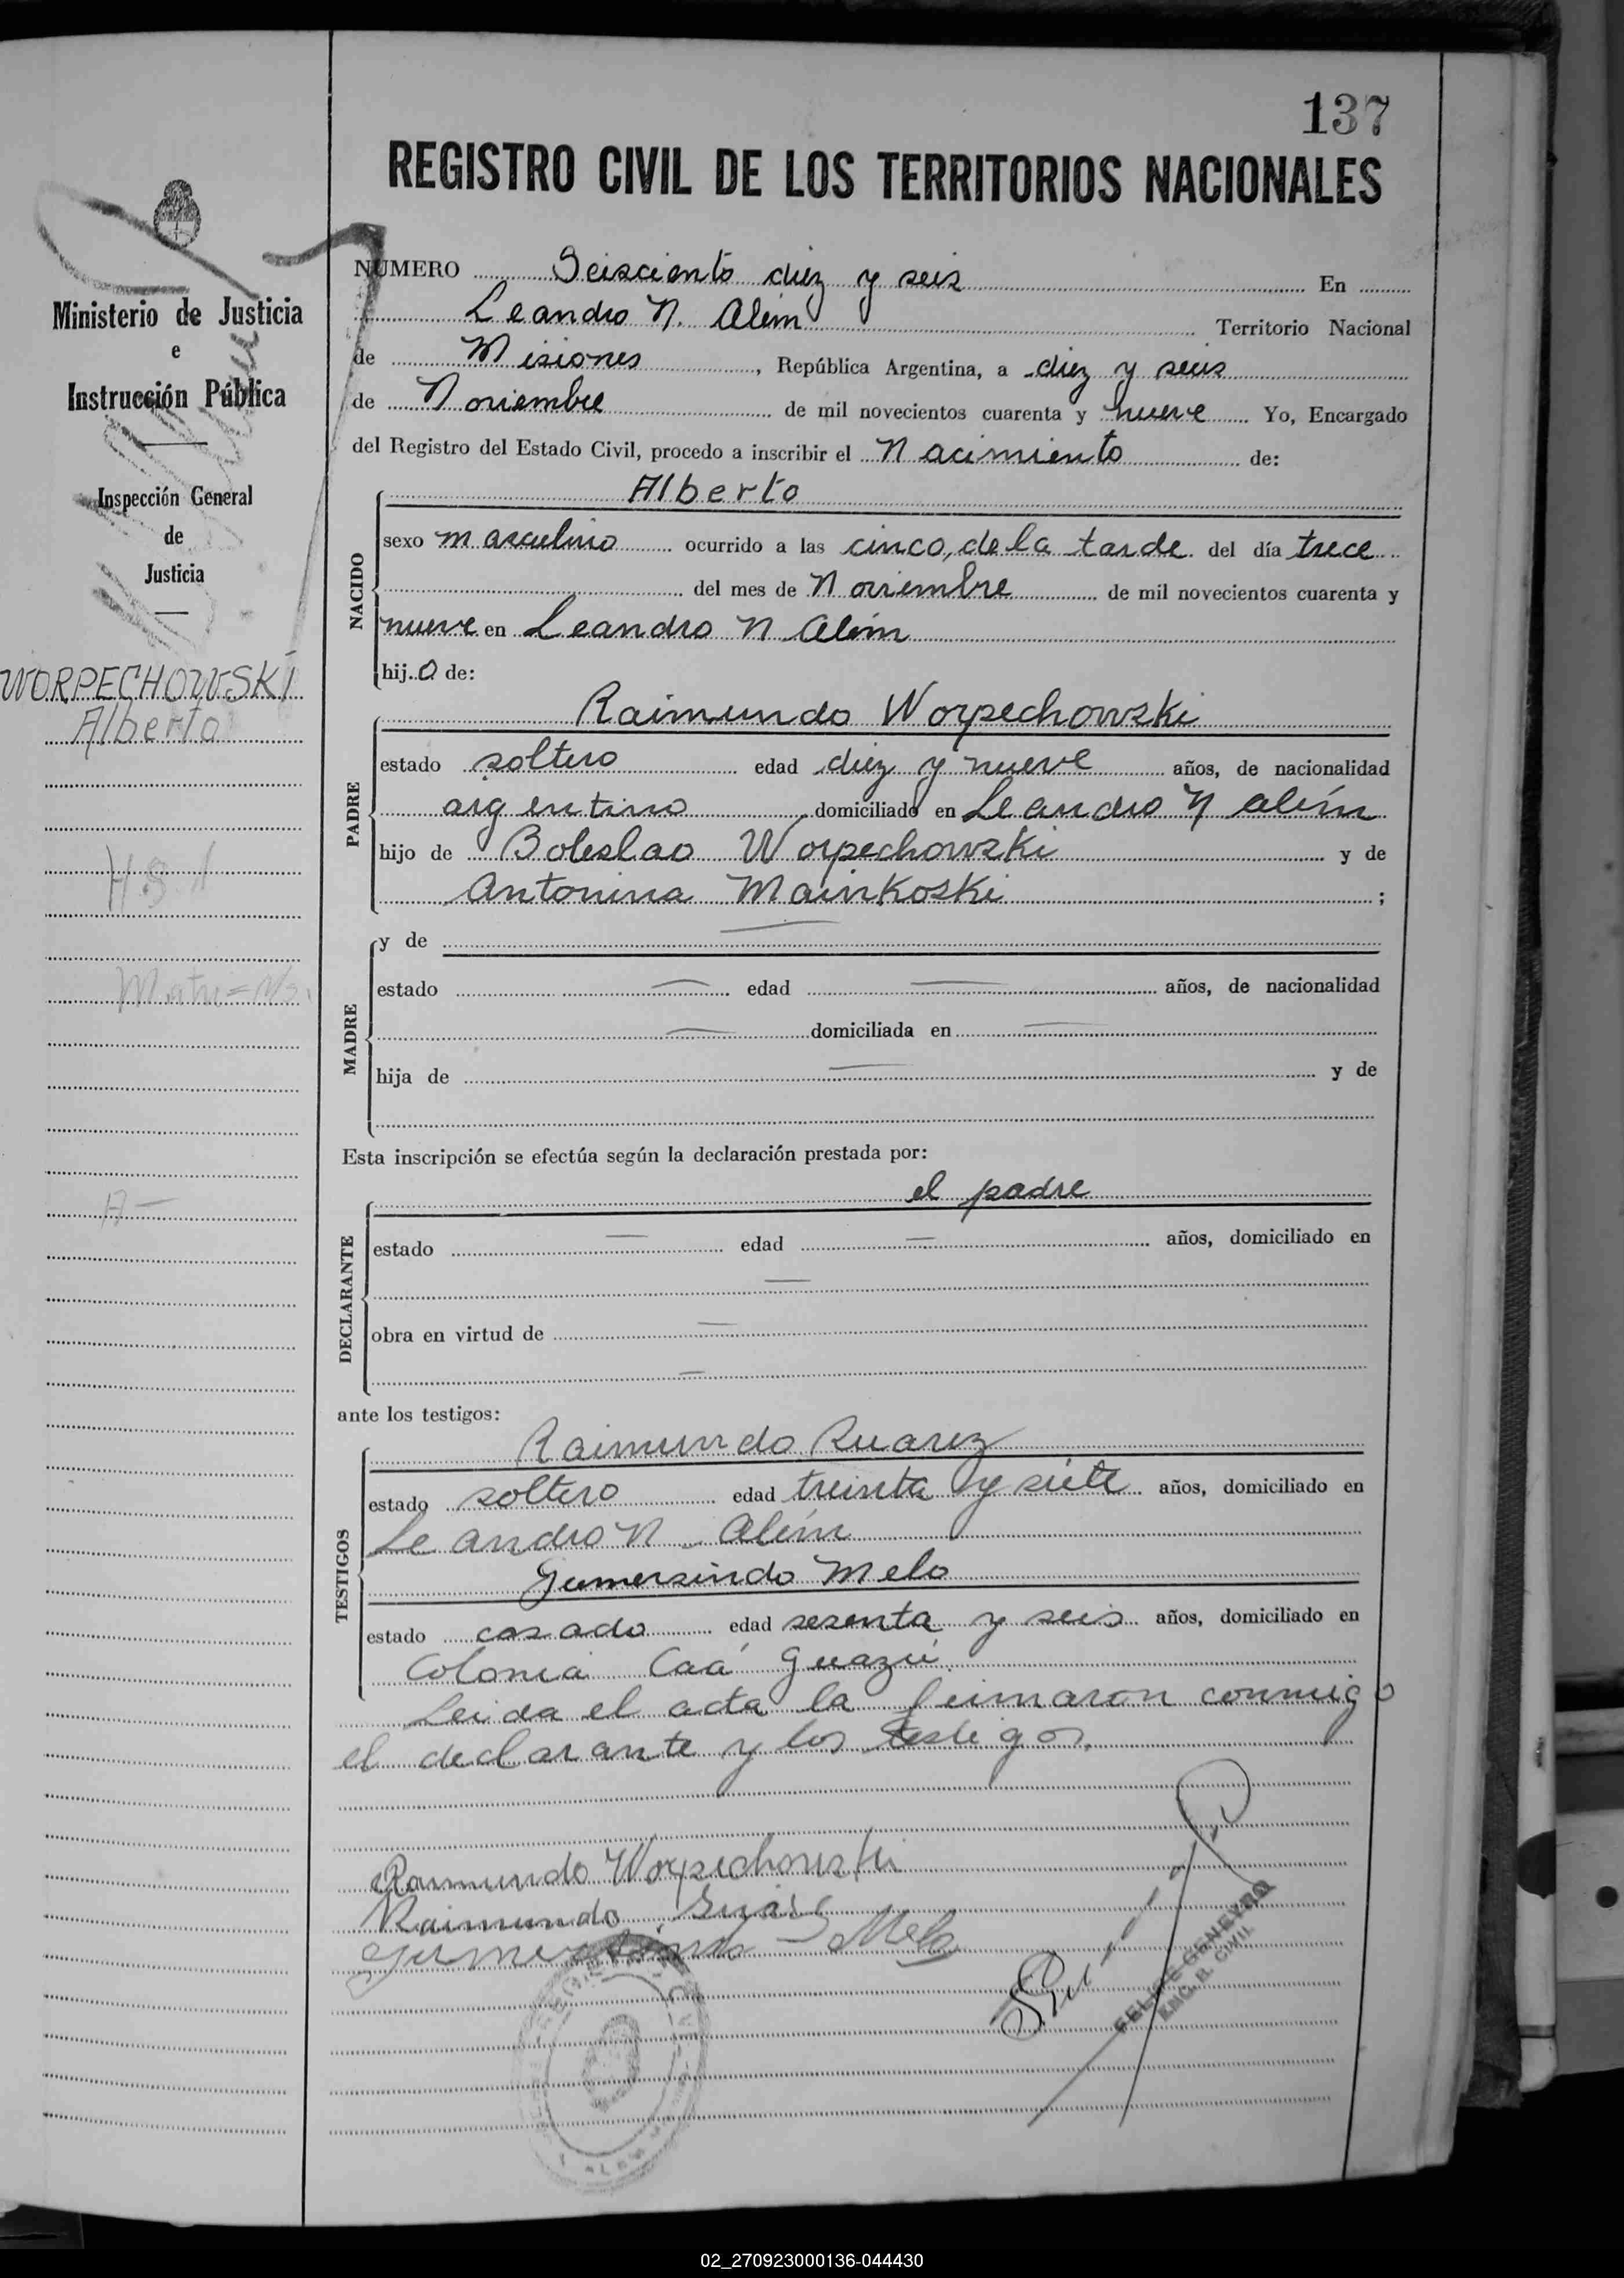 137
REGISTRO CIVIL DE LOS TERRITORIOS NACIONALES
Ministerio de Justicia
e
Instrucción Pública
Inspección General
de
Justicia
WORPECHOWSKI
Alberto
NUMERO Seisciento diez y seis En
Leandro N. Alem Territorio Nacional
de Misiones, República Argentina, a diez y seis
de Noviembre de mil novecientos cuarenta y nueve Yo, Encargado
del Registro del Estado Civil, procedo a inscribir el Nacimiento de:
NACIDO
Alberto
sexo masculino ocurrido a las cinco, de la tarde del día trece
del mes de Noviembre de mil novecientos cuarenta y
nueve en Leandro N Alem
hijo de:
PADRE
Raimundo Worpechowski
estado soltero edad diez y nueve años, de nacionalidad
argentino domiciliado en Leandro N Alem
hijo de Boleslao Worpechowski y de
Antonina Mainkoski ;
MADRE
y de
estado edad años, de nacionalidad
domiciliada en
hija de y de
Esta inscripción se efectúa según la declaración prestada por:
DECLARANTE
el padre
estado edad años, domiciliado en
obra en virtud de
ante los testigos:
TESTIGOS
Raimundo Suarez
estado soltero edad treinta y siete años, domiciliado en
Leandro N. Alem
Gumersindo Melo
estado casado edad sesenta y seis años, domiciliado en
Colonia Caá Guazú.
Leida el acta la firmaron conmigo
el declarante y los testigos.
Raimundo Worpechowski
Raimundo Suarez
Gumersindo Melo
FELIPE GENEYRO
ENC. R. CIVIL
02_270923000136-044430